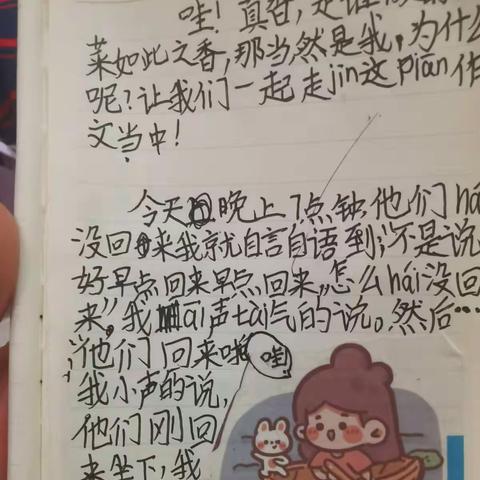 哇！真香，是谁
菜如此之香，那当然是我，为什么
呢？让我们一起走jin这piān作
文当中！
今天晚上7点钟，他们há
没回来我就自言自语到；不是说
好早点回来早点回来，怎么hái没回
来”我āi声tàn气的说。然后…
“他们回来啦 哇！
我小声的说，
他们刚回
来坐下，我